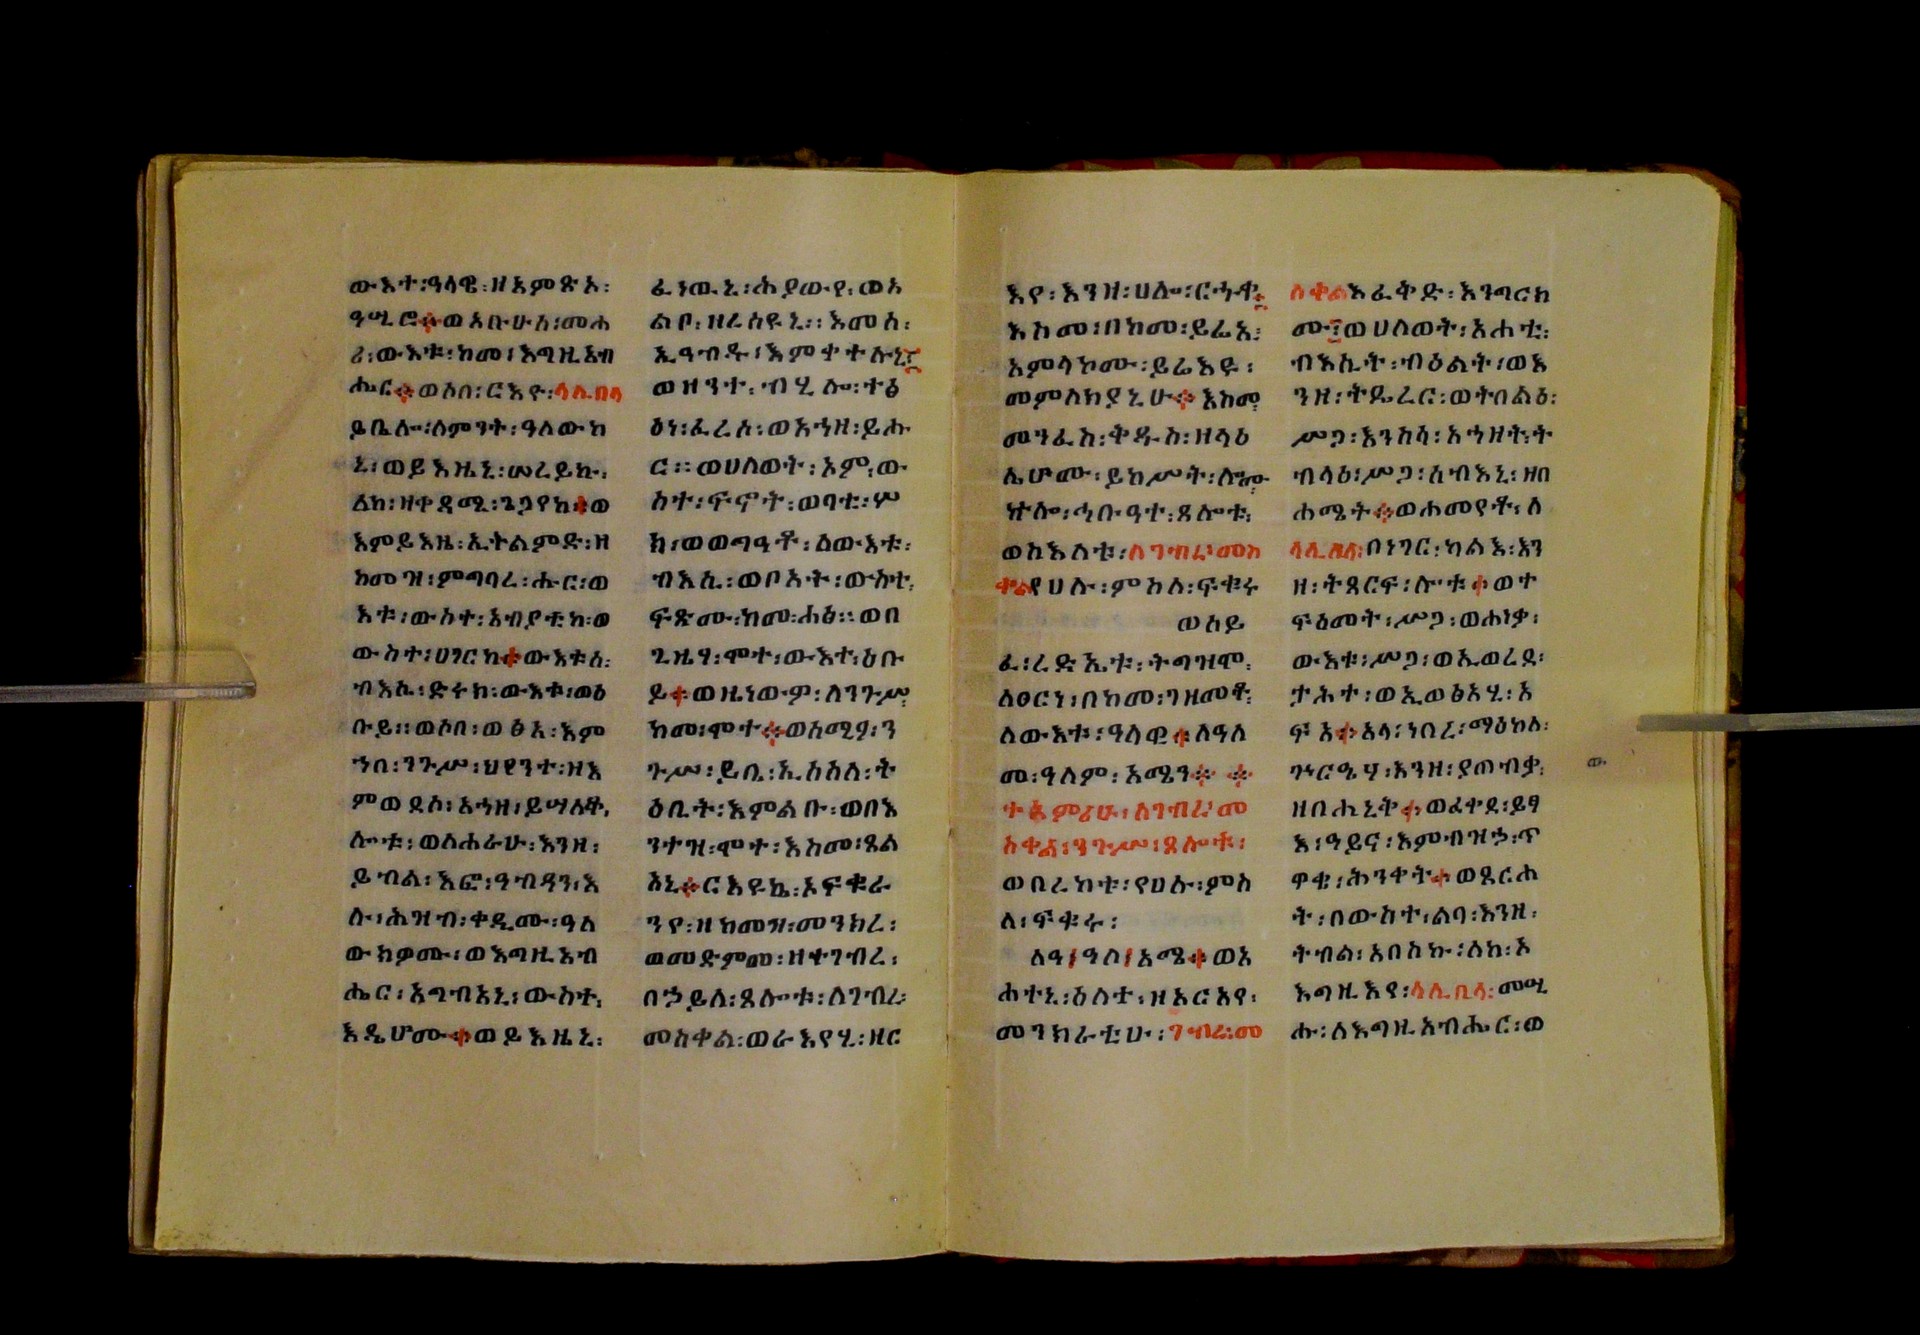 ውእተ፡ዓላዊ፡ዘአምጽኦ፡
ዓሢሮ፡ወአቡሁሰ፡መሐ
ሪ፡ውእቱ፡ከመ፡እግዚአብ
ሔር፡ወሶበ፡ርእዮ፡ላሊበላ
ይቤሎ፡ለምንት፡ዓለውከ
ኒ፡ወይእዜኒ፡ሠረይኩ፡
ለከ፡ዘቀዳሚ፡ጌጋየከ፡ወ
እምይእዜ፡ኢትልምድ፡ዘ
ከመዝ፡ምግባረ፡ሑር፡ወ
እቱ፡ውስተ፡አብያቲከ፡ወ
ውስተ፡ሀገርከ፡ውእቱሰ፡
ብእሲ፡ድሩክ፡ውእቱ፡ወዕ
ቡይ፡፡ወሶበ፡ወፅአ፡እም
ኀበ፡ንጉሥ፡ህየንተ፡ዘእ
ምወደሰ፡አኀዘ፡ይሣለቅ፡
ሎቱ፡ወስሐራሁ፡እንዘ፡
ይብል፡እፎ፡ዓብዳን፡እ
ሉ፡ሕዝብ፡ቀዲሙ፡ዓለ
ውክዎሙ፡ወእግዚአብ
ሔር፡አግብአኒ፡ውስተ፡
እዴሆሙ፡ወይእዜኒ፡
ፈነዉኒ፡ሕያውየ፡ወአ
ልቦ፡ዘረሰዩኒ፡፡እመሰ፡
ኢዓብዱ፡እምቀተሉኒ፡
ወዘንተ፡ብሂሎ፡ተፅ
ዕነ፡ፈረሰ፡ወአኀዘ፡ይሑ
ር፡፡ወሀለወት፡ኦም፡ው
ስተ፡ፍኖት፡ወባቲ፡ሦ
ክ፡ወወግዓቶ፡ለውእቱ፡
ብእሲ፡ወቦአት፡ውስተ፡
ፍጽሙ፡ከመ፡ሐፅ፡፡ወበ
ጊዜሃ፡ሞተ፡ውእተ፡ዕቡ
ይ፡ወዜነውዎ፡ለንጉሥ፡
ከመ፡ሞተ፡ወሰሚዖ፡ን
ጉሥ፡ይቤ፡ኢስአለ፡ት
ዕቢት፡እምልቡ፡ወበእ
ንተዝ፡ሞተ፡እስመ፡ጸል
አኒ፡ርእዩኬ፡ኦፍቁራ
ንየ፡ዘከመዝ፡መንክረ፡
ወመድምመ፡ዘተገብረ፡
በኃይለ፡ጸሎቱ፡ለገብረ፡
መስቀል፡ወራእየሂ፡ዘር
እየ፡እንዘ፡ሀሎ፡ርኁቀ፡
እስመ፡በከመ፡ይሬኢ፡
አምላኮሙ፡ይሬእዩ፡
መምለክያኒሁ፡እስመ፡
መንፈስ፡ቅዱስ፡ዘላዕ
ሌሆሙ፡ይከሥት፡ሎሙ፡
ኵሎ፡ኅቡዓተ፡ጸሎቱ፡
ወስእለቱ፡ለገብረ፡መስ
ቀልየሀሉ፡ምስለ፡ፍቁሩ
ወሰይ
ፈ፡ረድኤቱ፡ትግዝሞ፡
ለፀርነ፡በከመ፡ገዘመቶ፡
ለውእቱ፡ዓላዊ፡ለዓለ
መ፡ዓለም፡አሜን፡
ተአምሪሁ፡ለገብረ፡መ
ስቀል፡ንጉሥ፡ጸሎቱ፡
ወበረከቱ፡የሀሉ፡ምስ
ለ፡ፍቁሩ፡
ለዓ፡ዓለ፡አሜ፡ወአ
ሐተኒ፡ዕለተ፡ዘአርአየ፡
መንክራቲሁ፡ገብረ፡መ
ስቀልእፈቅድ፡እንግርክ
ሙ፡ወሀለወት፡አሐቲ፡
ብእሲት፡ብዕልት፡ወእ
ንዘ፡ትዴረር፡ወትበልዕ፡
ሥጋ፡እንስሳ፡አኀዘት፡ት
ብላዕ፡ሥጋ፡ሰብእኒ፡ዘበ
ሐሜት፡ወሐመየቶ፡ለ
ላሊበላ፡በነገር፡ካልእ፡እን
ዘ፡ትጸርፍ፡ሎቱ፡ወተ
ፍዕመት፡ሥጋ፡ወሐነቃ፡
ውእቱ፡ሥጋ፡ወኢወረደ፡
ታሕተ፡ወኢወፅአሂ፡አ
ፍአ፡አላ፡ነበረ፡ማዕከለ፡
ጕርዔሃ፡እንዘ፡ያጠብቃ፡
ዘበሐኒቅ፡ወፈቀደ፡ይፃ
እ፡ዓይና፡እምብዝኃ፡ጥ
ዋቄ፡ሕንቀት፡ወጸርሐ
ት፡በውስተ፡ልባ፡እንዘ፡
ትብል፡አበስኩ፡ለከ፡ኦ
እግዚእየ፡ላሊበላ፡መሢ
ሑ፡ለእግዚአብሔር፡ወ
ው